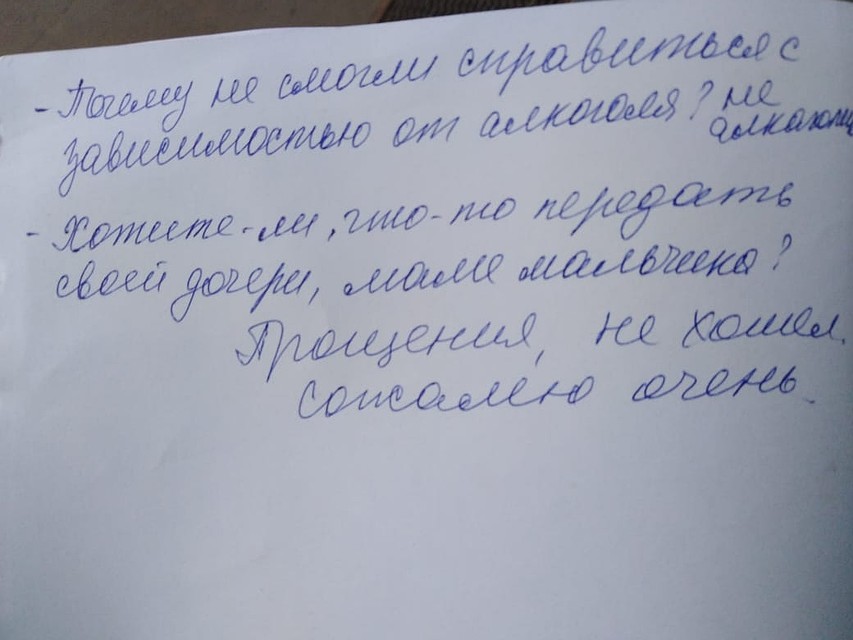 - Почему не смогли справиться с
зависимостью от алкоголя? не
алкаголи
- Хотите-ли, что-то передать
своей дочери, маме мальчика?
Прощения, не хотел.
сожалею очень.